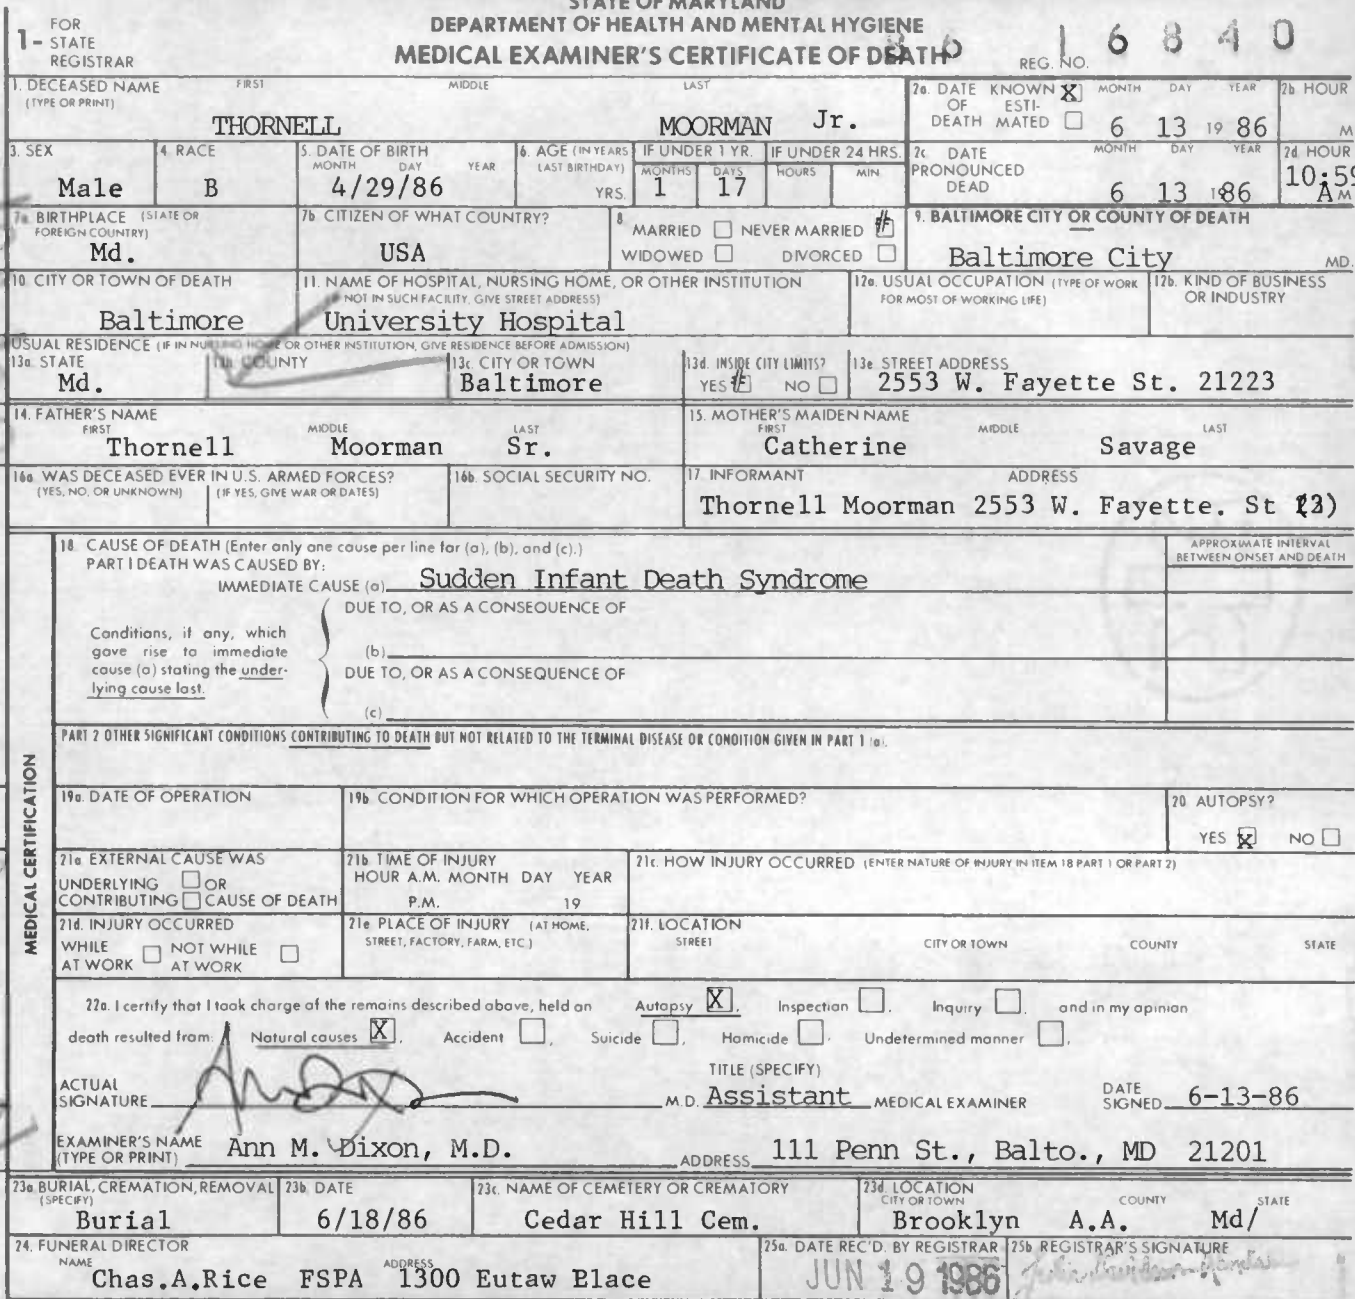 STATE OF MARYLAND
DEPARTMENT OF HEALTH AND MENTAL HYGIENE
MEDICAL EXAMINER'S CERTIFICATE OF DEATH
1- FOR STATE REGISTRAR
REG. NO. 86 16840
1. DECEASED NAME (TYPE OR PRINT) FIRST MIDDLE LAST
THORNELL MOORMAN Jr.
2a. DATE OF DEATH KNOWN X ESTIMATED MONTH DAY YEAR
6 13 19 86
2b HOUR M
3. SEX
Male
4. RACE
B
5. DATE OF BIRTH MONTH DAY YEAR
4/29/86
6. AGE (IN YEARS LAST BIRTHDAY) YRS.
IF UNDER 1 YR. MONTHS DAYS
1 17
IF UNDER 24 HRS. HOURS MIN
2c DATE PRONOUNCED DEAD MONTH DAY YEAR
6 13 1986
2d HOUR
10:59 A M
7a BIRTHPLACE (STATE OR FOREIGN COUNTRY)
Md.
7b CITIZEN OF WHAT COUNTRY?
USA
8 MARRIED NEVER MARRIED #
WIDOWED DIVORCED
9. BALTIMORE CITY OR COUNTY OF DEATH
Baltimore City MD.
10. CITY OR TOWN OF DEATH
Baltimore
11. NAME OF HOSPITAL, NURSING HOME, OR OTHER INSTITUTION
NOT IN SUCH FACILITY, GIVE STREET ADDRESS)
University Hospital
12a. USUAL OCCUPATION (TYPE OF WORK FOR MOST OF WORKING LIFE)
12b. KIND OF BUSINESS OR INDUSTRY
USUAL RESIDENCE (IF IN NURSING HOME OR OTHER INSTITUTION, GIVE RESIDENCE BEFORE ADMISSION)
13a. STATE
Md.
COUNTY
13c. CITY OR TOWN
Baltimore
13d. INSIDE CITY LIMITS?
YES # NO
13e STREET ADDRESS
2553 W. Fayette St. 21223
14. FATHER'S NAME FIRST MIDDLE LAST
Thornell Moorman Sr.
15. MOTHER'S MAIDEN NAME FIRST MIDDLE LAST
Catherine Savage
16a WAS DECEASED EVER IN U.S. ARMED FORCES?
(YES, NO, OR UNKNOWN) (IF YES, GIVE WAR OR DATES)
16b. SOCIAL SECURITY NO.
17. INFORMANT ADDRESS
Thornell Moorman 2553 W. Fayette. St (3)
MEDICAL CERTIFICATION
18 CAUSE OF DEATH (Enter only one cause per line for (a), (b), and (c).)
PART I DEATH WAS CAUSED BY:
IMMEDIATE CAUSE (a) Sudden Infant Death Syndrome
APPROXIMATE INTERVAL BETWEEN ONSET AND DEATH
Conditions, if any, which gave rise to immediate cause (a) stating the underlying cause last.
DUE TO, OR AS A CONSEQUENCE OF
(b)
DUE TO, OR AS A CONSEQUENCE OF
(c)
PART 2 OTHER SIGNIFICANT CONDITIONS CONTRIBUTING TO DEATH BUT NOT RELATED TO THE TERMINAL DISEASE OR CONDITION GIVEN IN PART 1 (a).
19a. DATE OF OPERATION
19b. CONDITION FOR WHICH OPERATION WAS PERFORMED?
20 AUTOPSY?
YES X NO
21a. EXTERNAL CAUSE WAS
UNDERLYING OR
CONTRIBUTING CAUSE OF DEATH
21b TIME OF INJURY
HOUR A.M. MONTH DAY YEAR
P.M. 19
21c. HOW INJURY OCCURRED (ENTER NATURE OF INJURY IN ITEM 18 PART 1 OR PART 2)
21d. INJURY OCCURRED
WHILE AT WORK NOT WHILE AT WORK
21e PLACE OF INJURY (AT HOME, STREET, FACTORY, FARM, ETC.)
21f. LOCATION
STREET CITY OR TOWN COUNTY STATE
22a. I certify that I took charge of the remains described above, held an Autopsy X, Inspection, Inquiry and in my opinion
death resulted from: Natural causes X, Accident, Suicide, Homicide, Undetermined manner.
ACTUAL SIGNATURE
TITLE (SPECIFY)
M.D. Assistant MEDICAL EXAMINER
DATE SIGNED 6-13-86
EXAMINER'S NAME (TYPE OR PRINT) Ann M. Dixon, M.D.
ADDRESS 111 Penn St., Balto., MD 21201
23a. BURIAL, CREMATION, REMOVAL (SPECIFY)
Burial
23b. DATE
6/18/86
23c. NAME OF CEMETERY OR CREMATORY
Cedar Hill Cem.
23d. LOCATION CITY OR TOWN COUNTY STATE
Brooklyn A.A. Md/
24. FUNERAL DIRECTOR
NAME ADDRESS
Chas.A.Rice FSPA 1300 Eutaw Elace
25a. DATE REC'D. BY REGISTRAR
JUN 19 1986
25b. REGISTRAR'S SIGNATURE